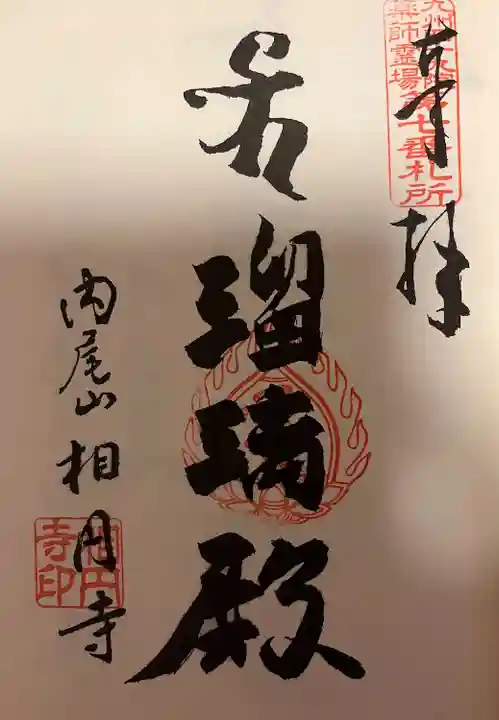 奉拝
九州四十九院
薬師霊場第七番札所
瑠璃殿
内尾山 相円寺
相円
寺印